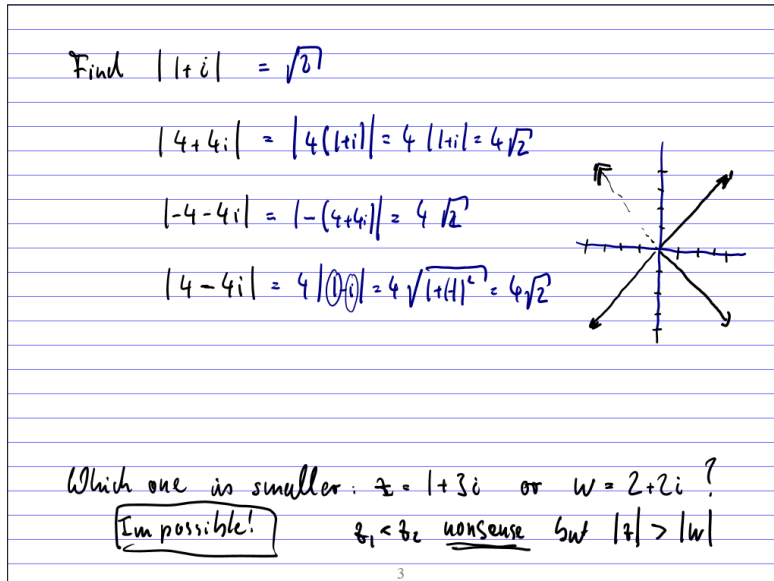 Find |1+i| = √2
|4+4i| = |4(1+i)| = 4 |1+i| = 4√2
|-4-4i| = |-(4+4i)| = 4√2
|4-4i| = 4|1-i| = 4√1+(-1)² = 4√2
Which one is smaller: z = 1+3i or w = 2+2i ?
Impossible! z₁ < z₂ nonsense but |z| > |w|
3